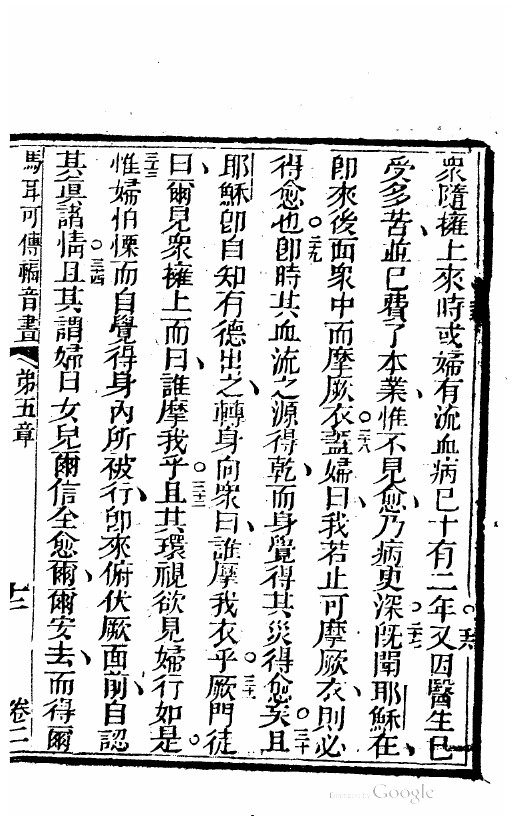 衆隨擁上來時或婦有流血病已十有二年。二六又因醫生已
受多苦、並已費了本業、惟不見愈、乃病更深。二七既聞耶穌在、
即來後面衆中而摩厥衣。二八蓋婦曰、我若止可摩厥衣、則必
得愈也。二九即時其血流之源得乾、而身覺得其災得愈矣。三十且
耶穌即自知有德出之、轉身向衆曰、誰摩我衣乎。三一厥門徒
曰、爾見衆擁上而曰、誰摩我乎。三二且其環視欲見婦行如是。
三三惟婦怕慄而自覺得身內所被行、即來俯伏厥面前、自認
其眞諸情。三四且其謂婦曰、女兒爾信全愈爾、爾安去、而得爾
馬耳可傳福音書 第五章 十二 卷二
Google